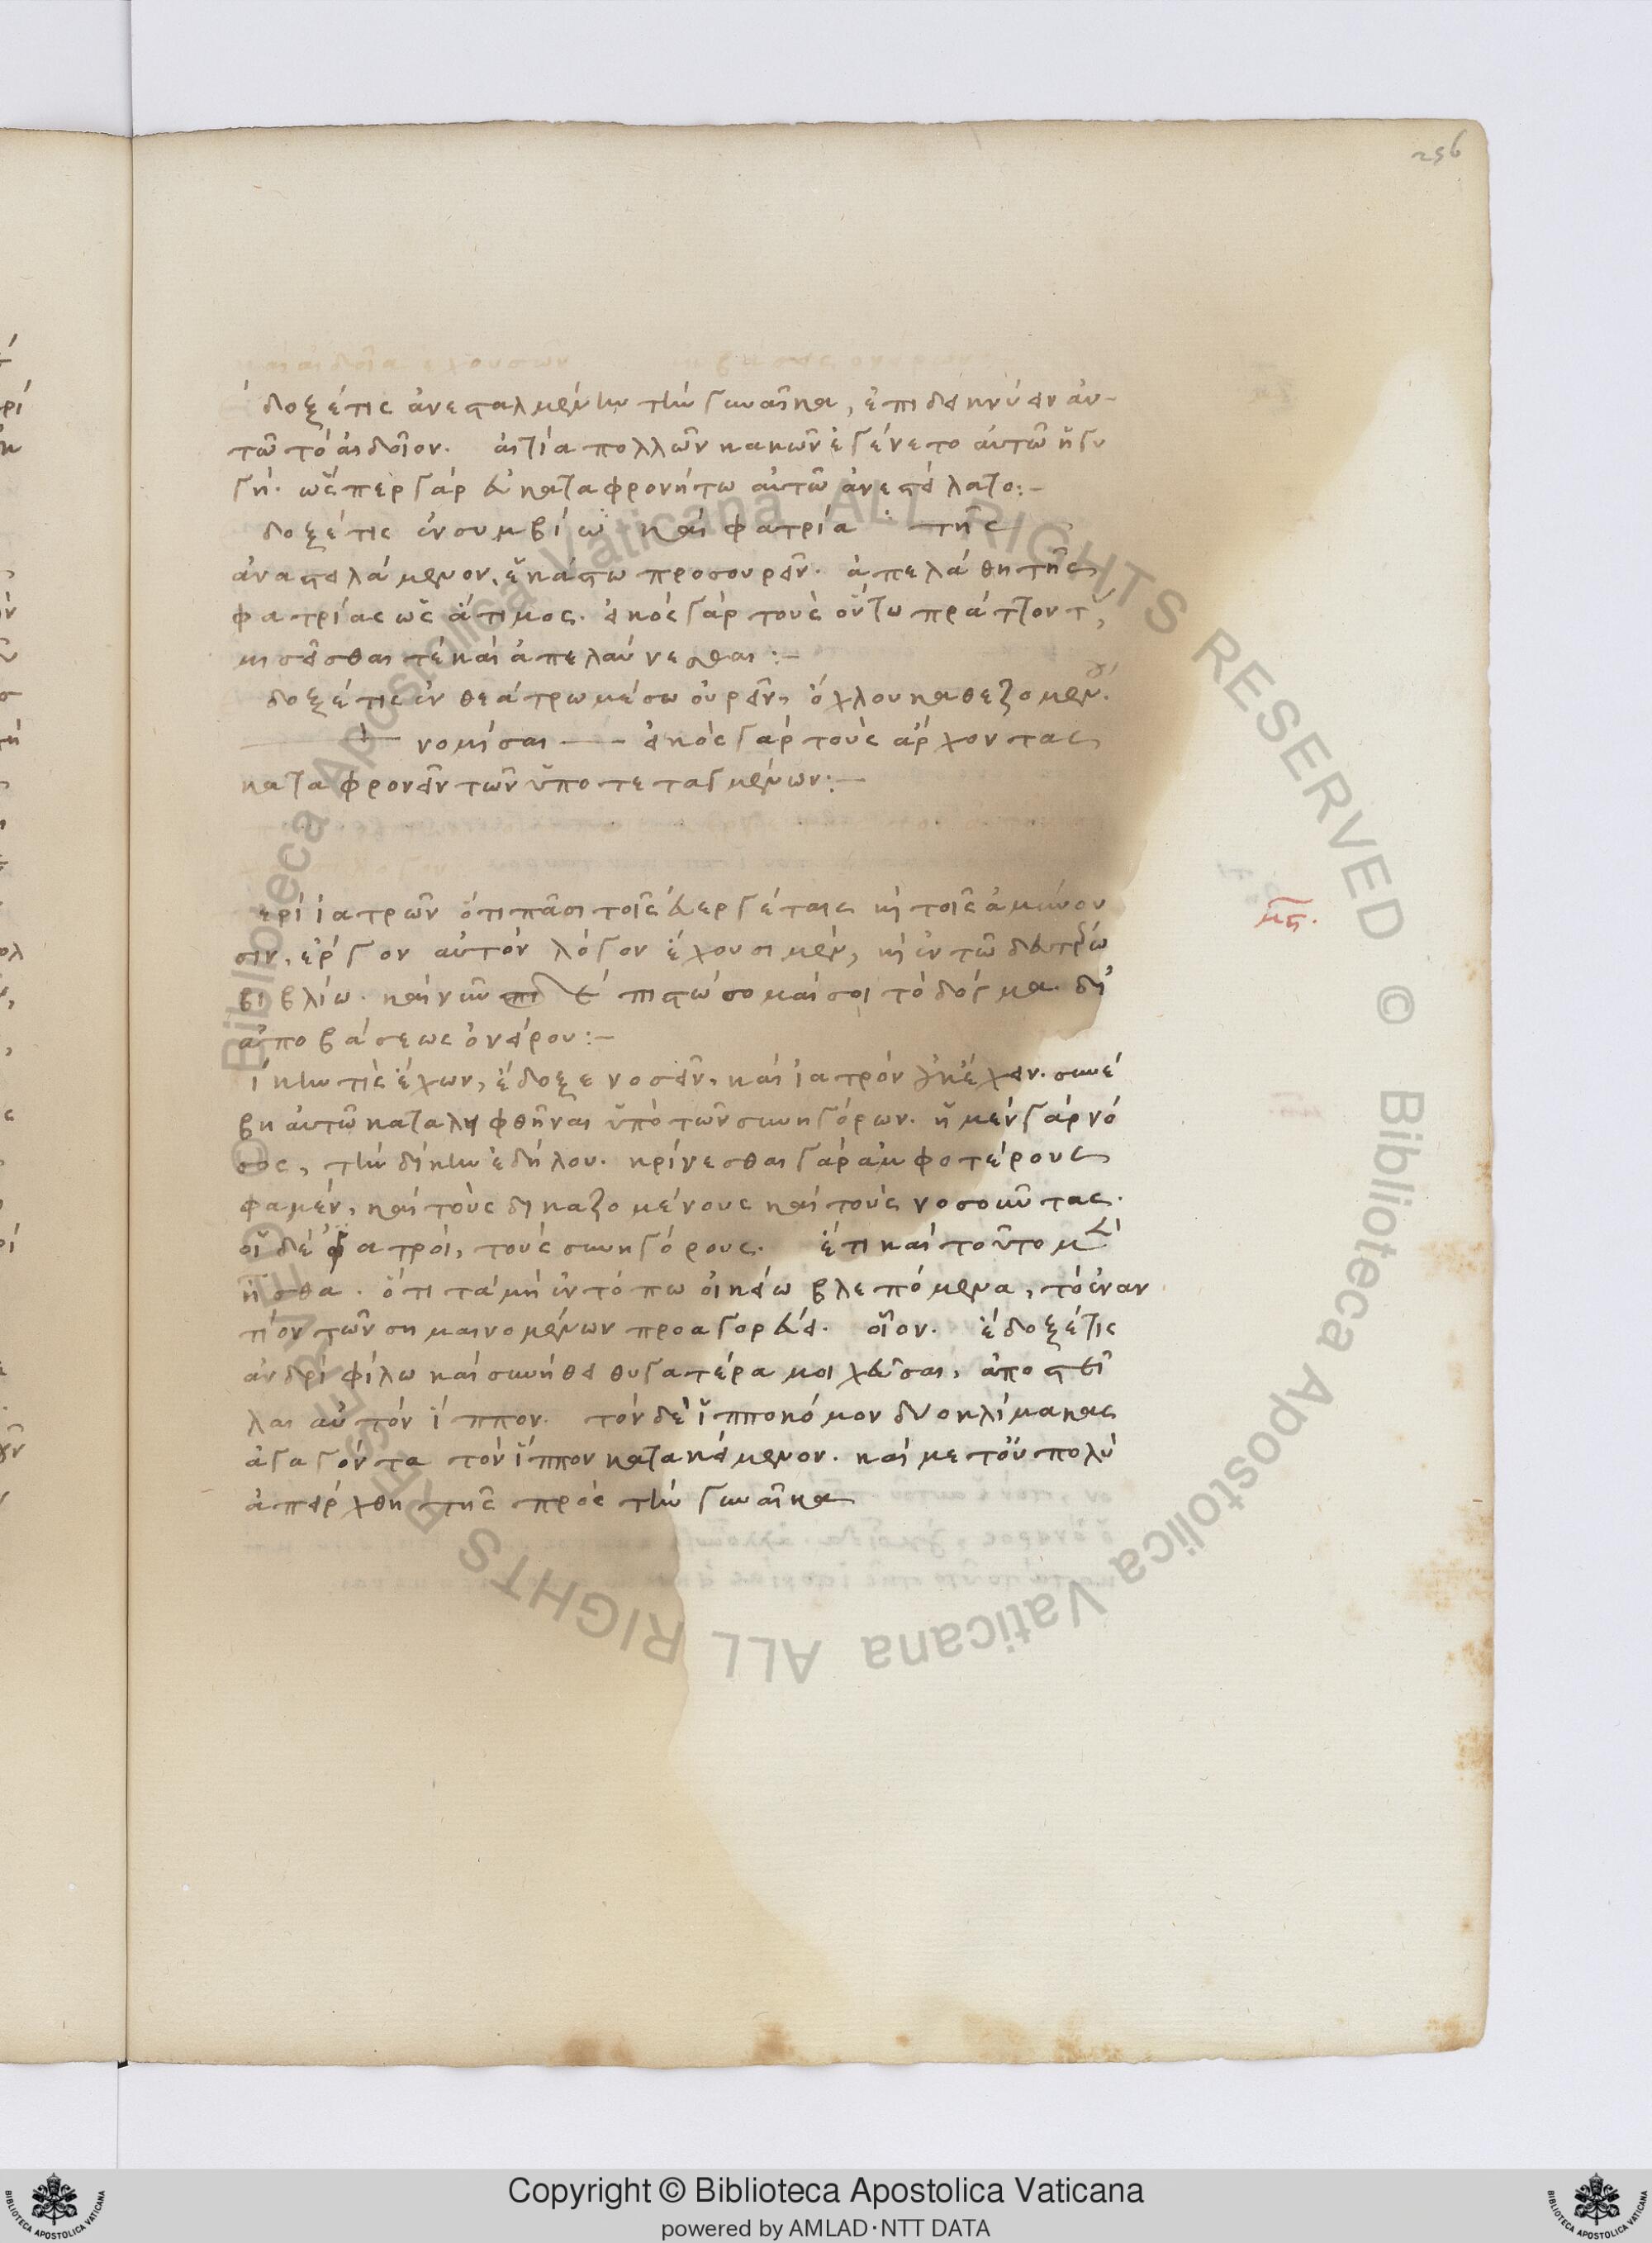 256
δοξέ τις ἀνεσταλμένην τὴν γυναῖκα, ἐπιδεικνύειν αὐ-
τῶ τὸ αἰδοῖον. αἰτία πολλῶν κακῶν ἐγένετο αὐτῶ ἡ γυ
νή. ὥσπερ γὰρ εὐκαταφρονήτω αὐτῶ ἀνεστείλατο:-
δοξέ τις ἐν συμβίω καὶ φατρία τῆς
ἀναστειλάμενον, ἑκάστω προσουρεῖν. ἀπελάθη τῆς
φατρίας ὡς ἄτιμος. εἰκὸς γὰρ τοὺς οὕτω πράττοντ
μισεῖσθαί τε καὶ ἀπελαύνεσθαι:-
δοξέ τις ἐν θεάτρω μέσω οὐρεῖν, ὄχλου καθεζομέν
νομίσαι εἰκὸς γὰρ τοὺς ἄρχοντας
καταφρονεῖν τῶν ὑποτεταγμένων:-
ερὶ ἰατρῶν ὅτι πᾶσι τοῖς εὐεργέταις κὴ τοῖς ἀμύνου
σιν, ἔργον αὐτὸν λόγον ἔχουσι μὲν, κὴ ἐν τῶ δευτέρω
βιβλίω. καὶ νῦν πιστώσομαί σοι τὸ δόγμα. δι'
ἀποβάσεως ὀνείρου:-
μς.
ίκην τὶς ἔχων, ἔδοξε νοσεῖν, καὶ ἰατρὸν οὐκ ἔχειν. συνέ
βη αὐτῶ καταληφθῆναι ὑπὸ τῶν συνηγόρων. ἡ μὲν γὰρ νό
σος, τὴν δίκην ἐδήλου. κρίνεσθαι γὰρ ἀμφοτέρους
φαμέν, καὶ τοὺς δικαζομένους καὶ τοὺς νοσοῦντας.
οἱ δὲ ἰατροί, τοὺς συνηγόρους. ἔτι καὶ τοῦτο
ἦσθα. ὅτι τὰ μὴ ἐν τόπω οἰκείω βλεπόμενα, τὸ ἐναν
τίον τῶν σημαινομένων προαγορεύει. οἷον. ἔδοξέ τις
ἀνδρὶ φίλω καὶ συνήθει θυγατέρα μοιχεῦσαι, ἀποστεῖ
λαι αὐτὸν ἵππον. τὸν δὲ ἱπποκόμον δυο κλίμακας
ἀγαγόντα τὸν ἵππον κατακείμενον. καὶ μετ' οὐ πολὺ
ἀπείρχθη τῆς πρὸς τὴν γυναῖκα
Copyright © Biblioteca Apostolica Vaticana
powered by AMLAD·NTT DATA
Biblioteca Apostolica Vaticana ALL RIGHTS RESERVED © Biblioteca Apostolica Vaticana ALL RIGHTS RESERVED ©